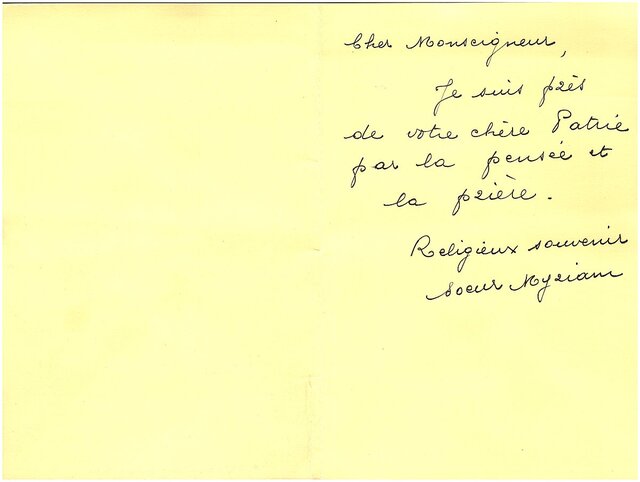 Cher Monseigneur,
Je suis près
de votre chère Patrie
par la pensée et
la prière.
Religieux souvenir
Soeur Myriam